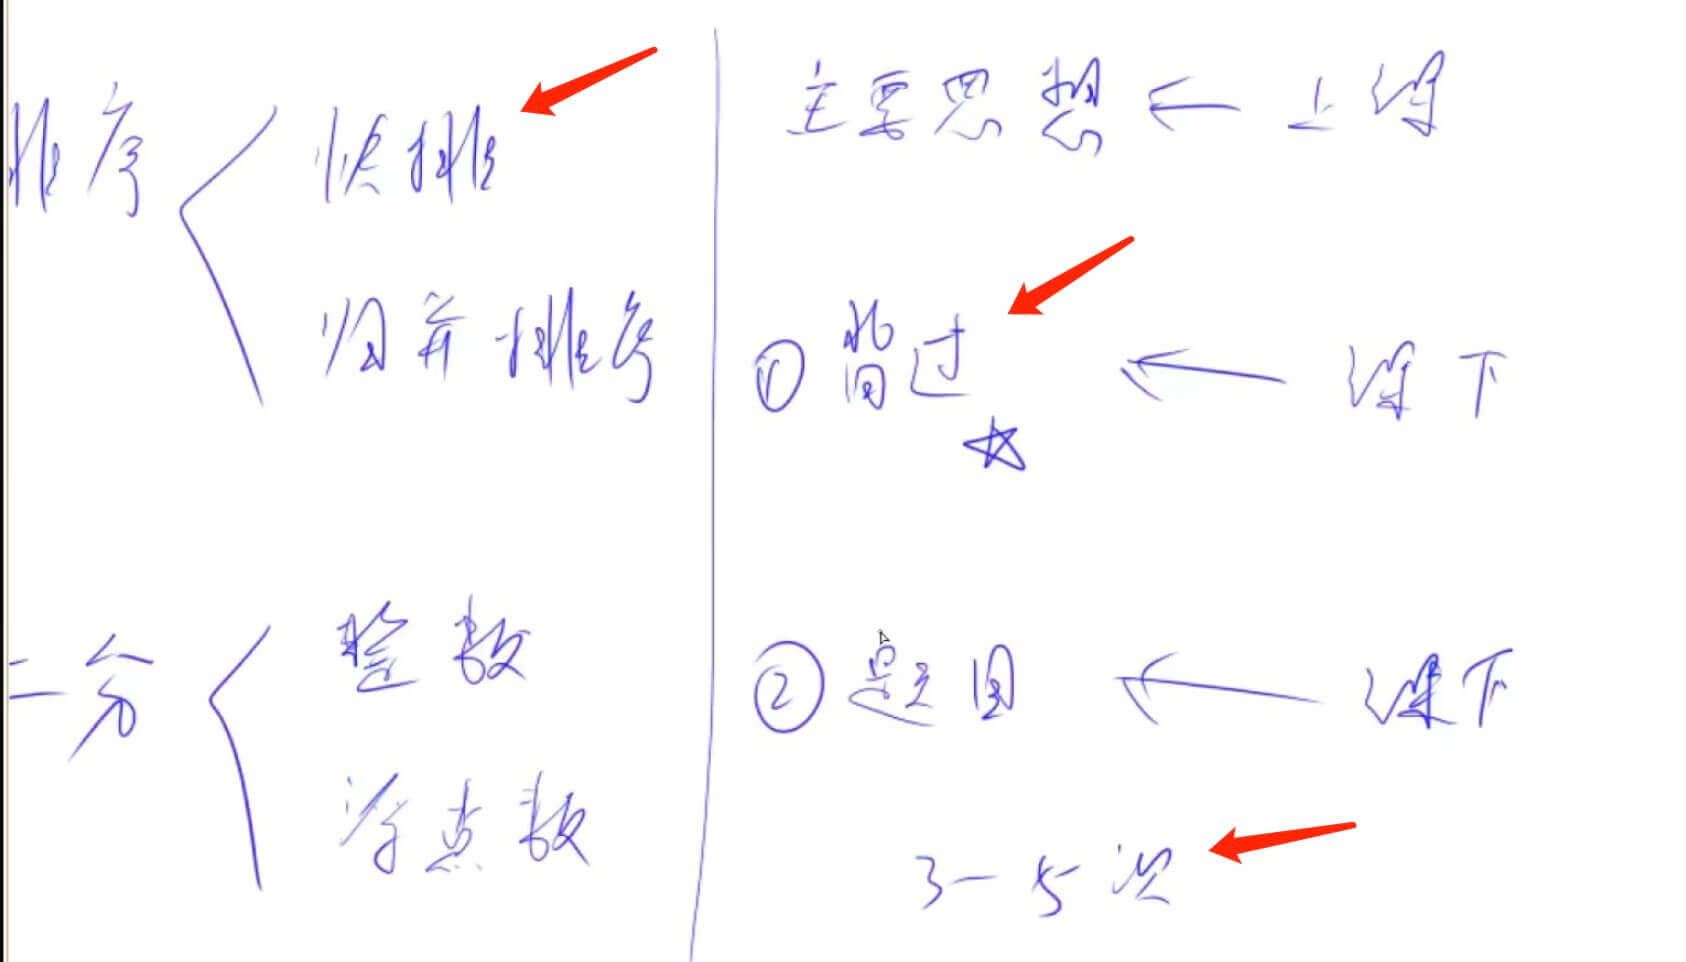 排序
快排
归并排序
二分
整数
浮点数
主要思想 ← 上课
① 背过 ← 课下
② 题目 ← 课下
3-5次